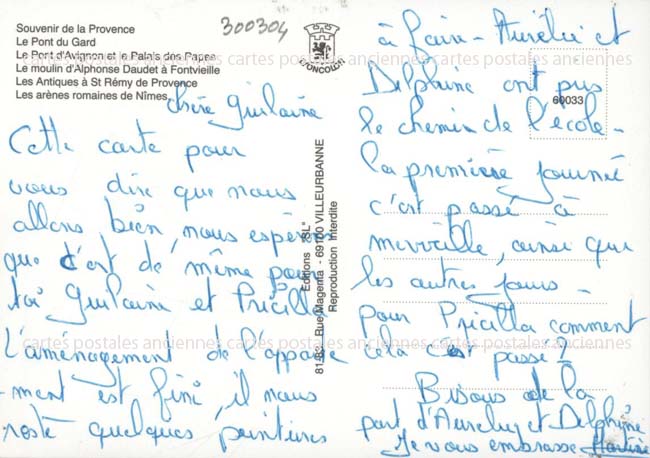 Souvenir de la Provence
Le Pont du Gard
Le Pont d'Avignon et le Palais des Papes
Le moulin d'Alphonse Daudet à Fontvieille
Les Antiques à St Rémy de Provence
Les arènes romaines de Nîmes
300304
chère Guilaine
Cette carte pour
vous dire que nous
allons bien, nous espérons
que c'est de même pour
toi Guilaine et Pricilla
L'aménagement de l'apparte
-ment est fini, il nous
reste quelques peintures
Editions "SL"
81-83 Rue Magenta - 69100 VILLEURBANNE
Reproduction Interdite
60033
à faire - Aurélie et
Delphine ont pris
le chemin de l'école -
la première journée
c'est passé à
merveille, ainsi que
les autres jours -
pour Pricilla comment
cela c'est passé ?
Bisous de la
part d'Aurélie et Delphine
Je vous embrasse Martine
cartes postales anciennes cartes postales anciennes cartes postales anciennes
cartes postales anciennes cartes postales anciennes cartes postales anciennes